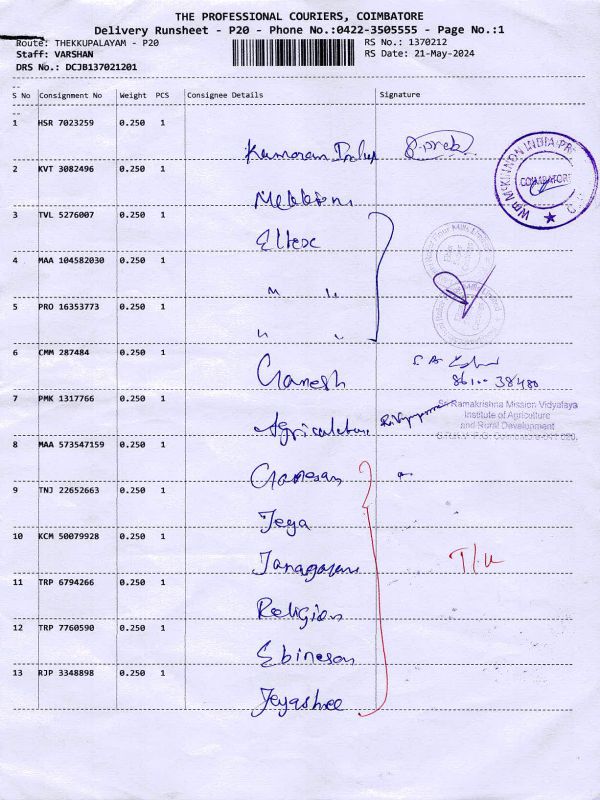 THE PROFESSIONAL COURIERS, COIMBATORE
Delivery Runsheet - P20 - Phone No.:0422-3505555 - Page No.:1
Route: THEKKUPALAYAM - P20 RS No.: 1370212
Staff: VARSHAN RS Date: 21-May-2024
DRS No.: DCJB137021201
S No Consignment No Weight PCS Consignee Details Signature
1 HSR 7023259 0.250 1
2 KVT 3082496 0.250 1
3 TVL 5276007 0.250 1
4 MAA 104582030 0.250 1
5 PRO 16353773 0.250 1
6 CMM 287484 0.250 1 Ganesh
86100 38480
7 PMK 1317766 0.250 1 Agriculture
Sri Ramakrishna Mission Vidyalaya
Institute of Agriculture
and Rural Development
8 MAA 573547159 0.250 1 Ganesan
9 TNJ 22652663 0.250 1 Jeya
10 KCM 50079928 0.250 1
11 TRP 6794266 0.250 1 Religion
12 TRP 7760590 0.250 1 Ebinesan
13 RJP 3348898 0.250 1 Jeyashree
COIMBATORE